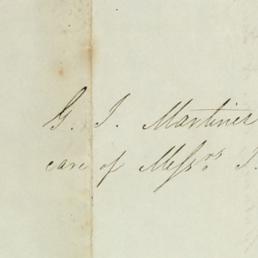 G. J. Martiner
care of Messrs J.